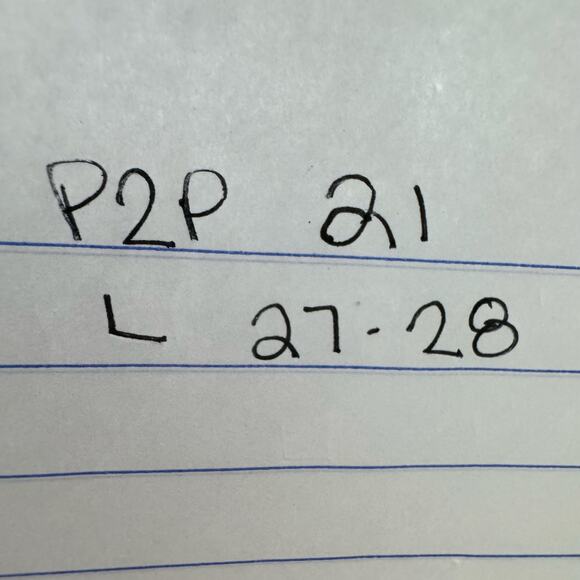 P2P 21
L 27-28